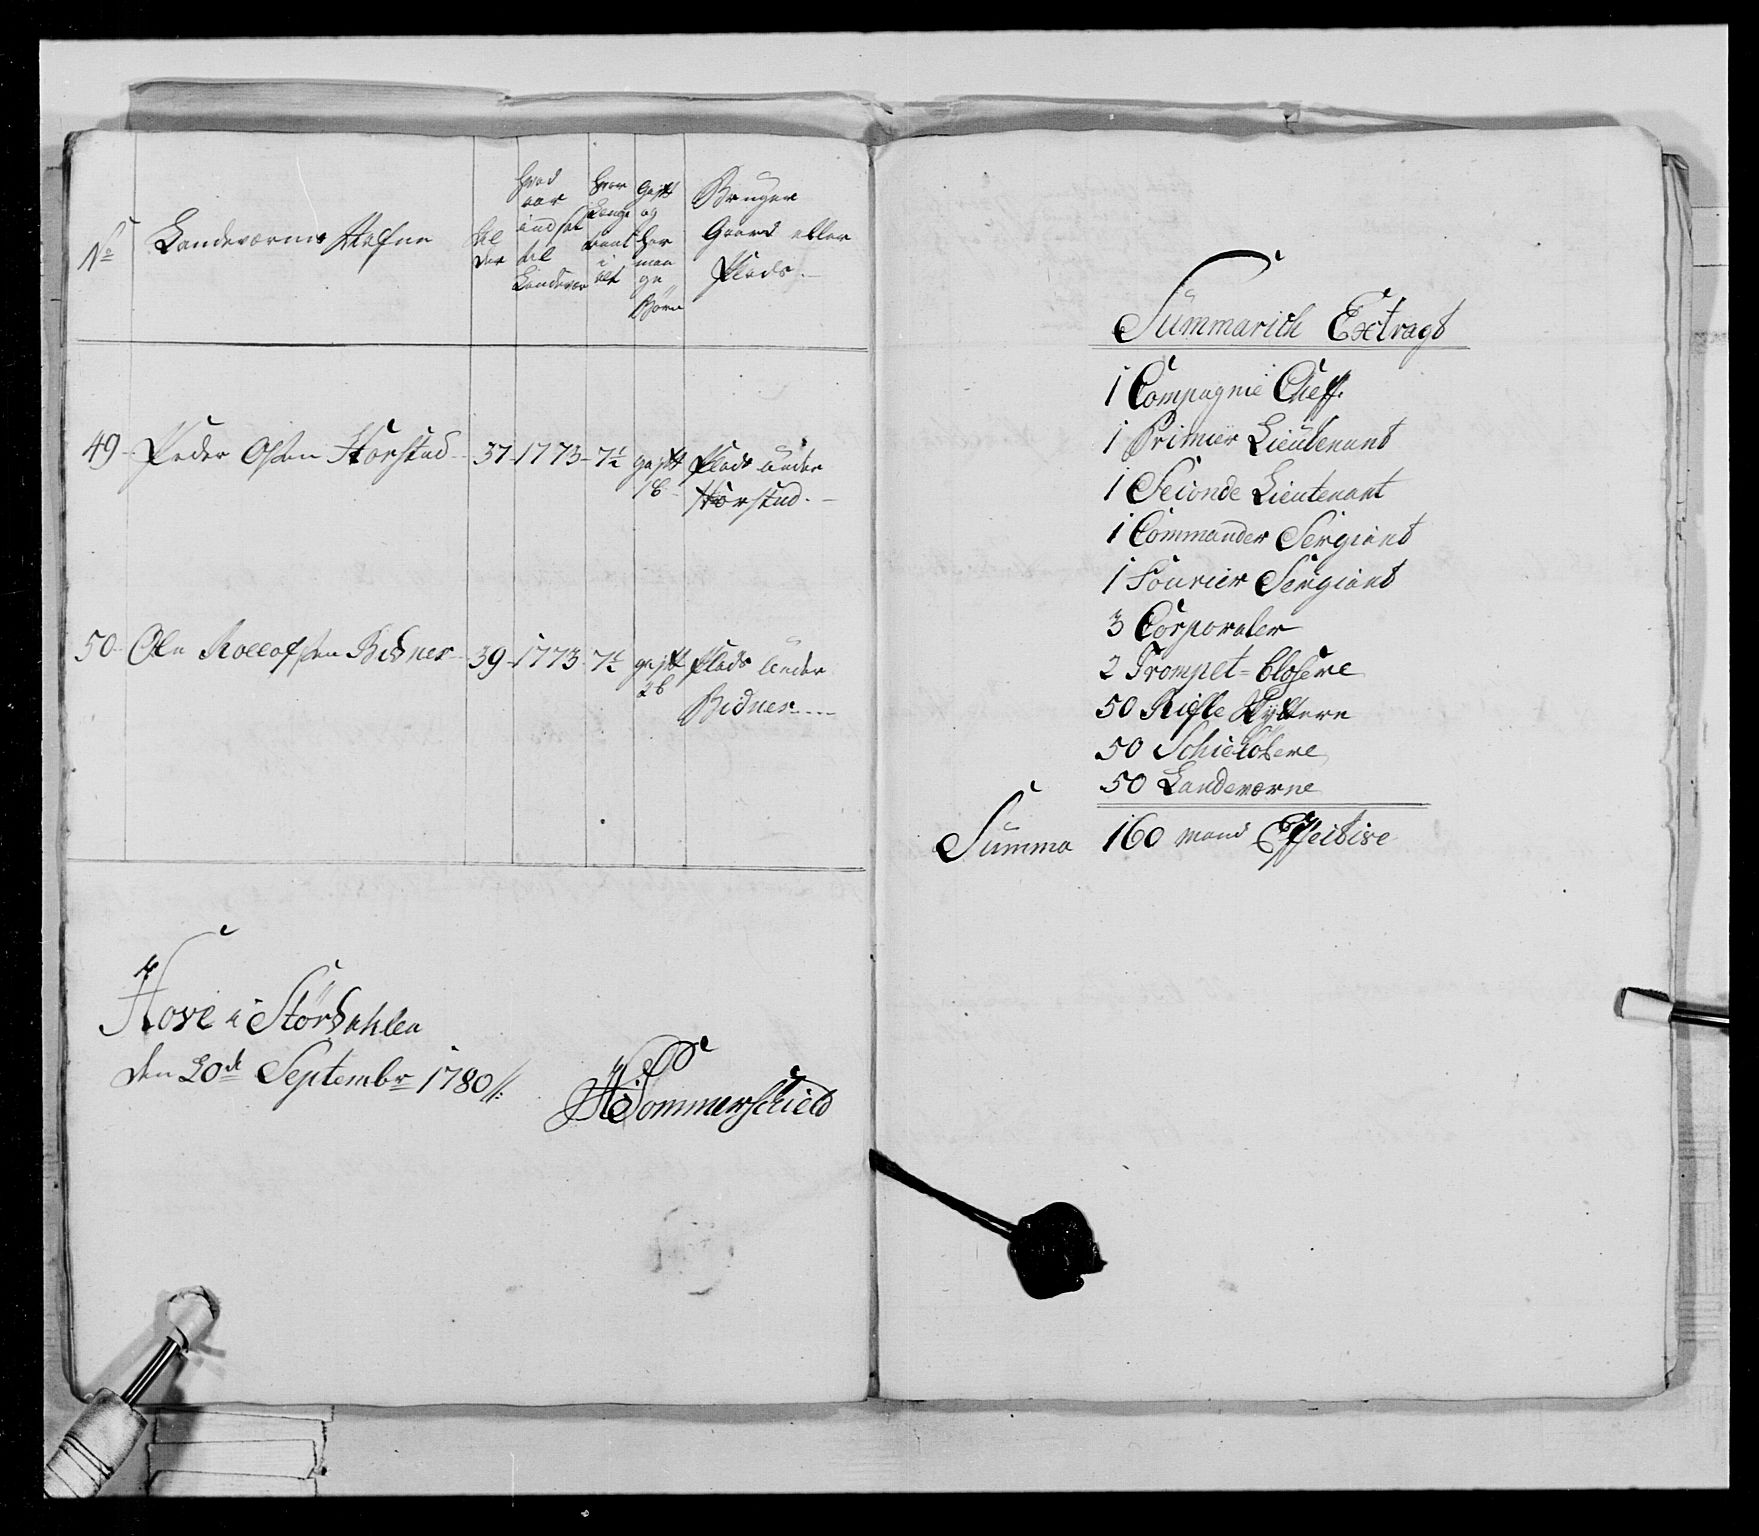 No
Landeværnes Nafne
Al
der
hvad
aar
indsat
til
Landevær
hvor
lenge
tient
i
alt
Gift
og
hvor
man
ge
Börn
Bruger
Gaard eller
Plads.
49 Peder Olsen Storstad 37 1773 7½ gift Plads under
1 b Storstad.
50 Ole Rollofsen Bidnes 39 1773 7½ gift Plads under
2 b Bidnes
Hove i StörDahlen
den 20de Septembr 1780
Sommerschield
Summarish Extragt
1 Compagnie Cheff.
1 Primier Lieutenant
1 Seconde Lieutenant
1 Commander Sergiant
1 Fourier Sergiant
3 Corporaler
2 Trompet-blosere
50 Rifle Skyttere
50 Schielöbere
50 Landeværne
Summa 160 mand Effective